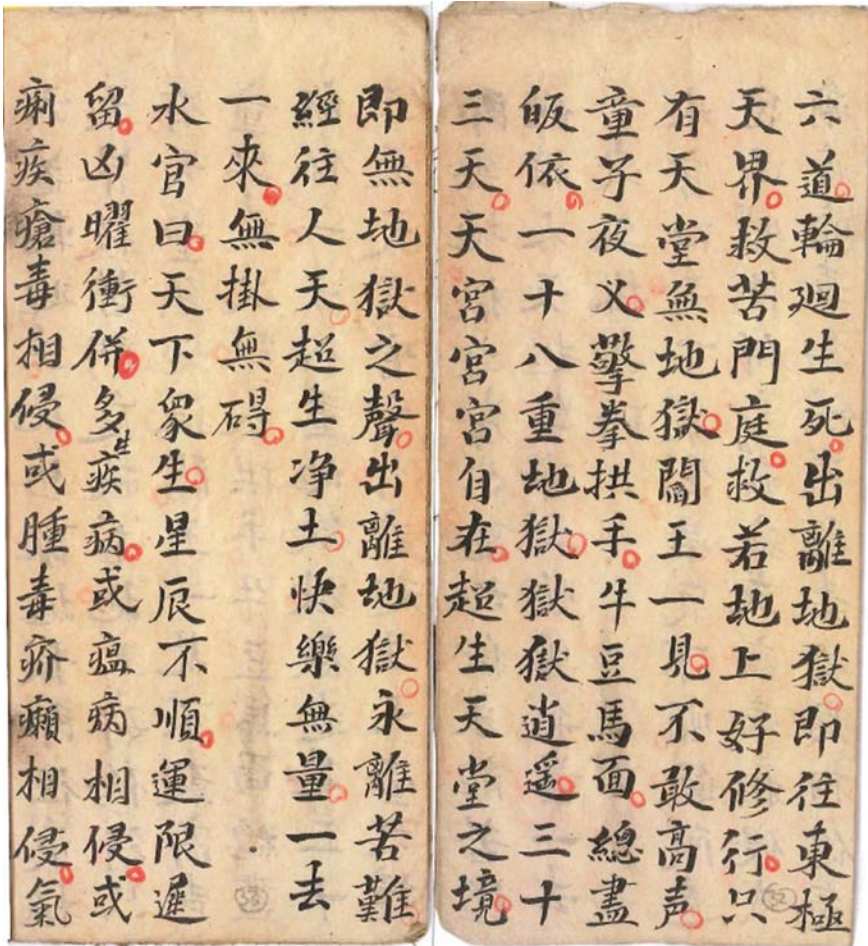 六道輪廻生死出離地獄即往東極
天界救苦門庭救若地上好修行只
有天堂無地獄閻王一見不敢高声
童子夜义擎拳拱手牛豆馬面總盡
皈依一十八重地獄獄獄逍遥三十
三天天宮宮宮自在超生天堂之境
即無地獄之聲出離地獄永離苦難
經往人天超生净土快樂無量一去
一來無掛無碍
水官曰天下衆生星辰不順運限遲
留凶曜衝併多生疾病或瘟病相侵或
痢疾瘡毒相侵或腫毒疥癩相侵氣